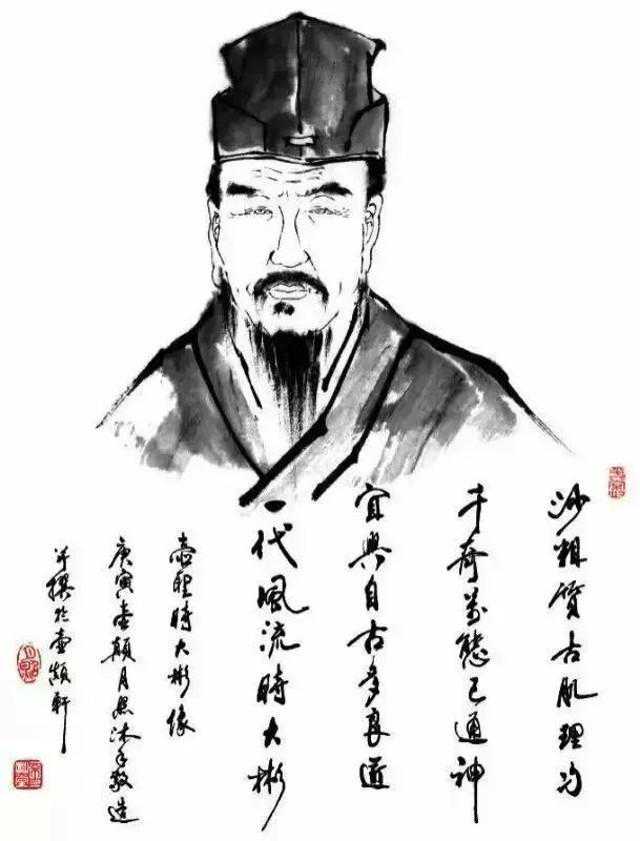 沙粗質古肌理匀
千奇萬態已通神
宜興自古多良匠
一代風流時大彬
壺聖時大彬像
庚寅壺顛月照沐手敬造
并撰於壺顛軒